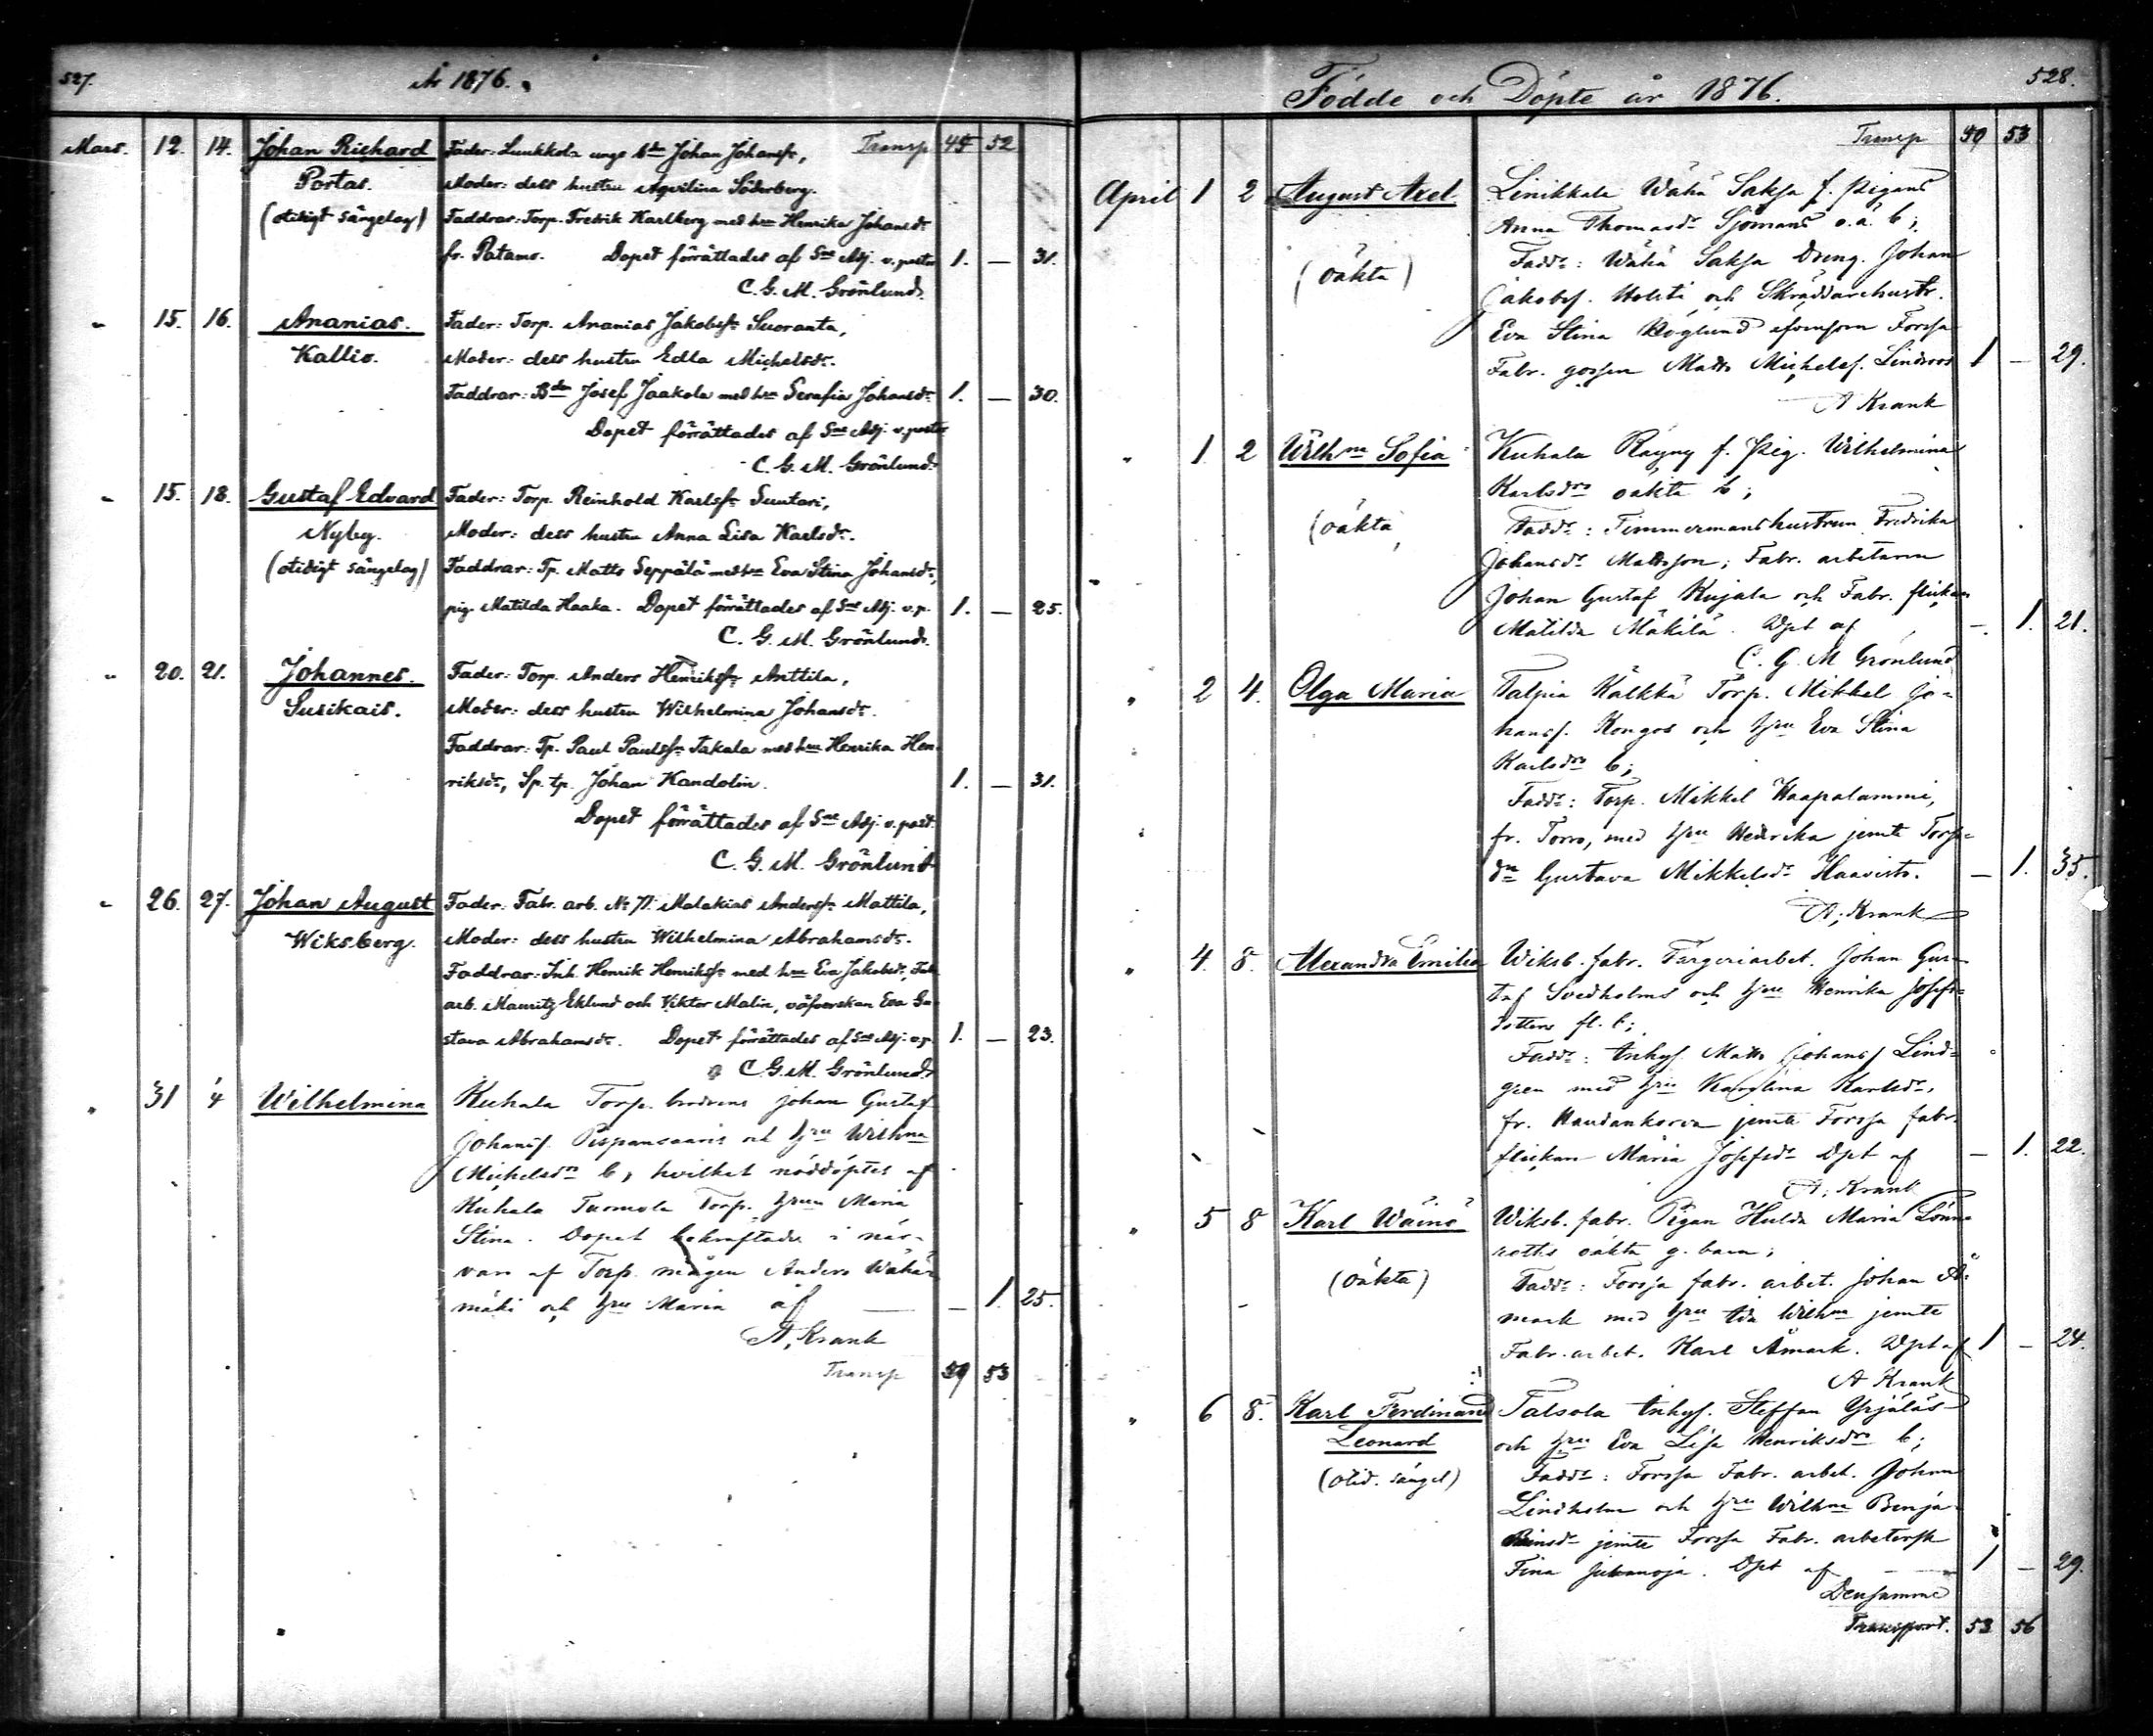 527.
År 1876.
Mars. 12. 14. Johan Richard Fader: Lunkkola unge bdn Johan Johansfr, Transp 45 52
Portas. Moder: dess hustru Aqvilina Söderberg.
(otidigt sängelag) Faddrar: Torp. Fredrik Karlberg med hm Henrika Johansdr
fr. Patamo. Dopet förrättades af Sne Adj. v. pastor 1. — 31.
C. G. M. Grönlund.
" 15. 16. Ananias. Fader: Torp. Ananias Jakobsfr Suoranta,
Kallio. Moder: dess hustru Edla Michelsdr.
Faddrar: Bdn Josef Jaakola med hm Serafia Johansdr 1. — 30.
Dopet förrättades af Sne Adj. v. pastor
C. G. M. Grönlund.
" 15. 18. Gustaf Edvard Fader: Torp. Reinhold Karlsfr Suutari,
Nyby. Moder: dess hustru Anna Lisa Karlsdr.
(otidigt sängelag) Faddrar: Tp. Matts Seppälä med hm Eva Stina Johansdr,
pig. Matilda Haaka. Dopet förrättades af Sne Adj. v. p. 1. — 25.
C. G. M. Grönlund.
" 20. 21. Johannes. Fader: Torp. Anders Henriksfr Anttila,
Susikais. Moder: dess hustru Wilhelmina Johansdr.
Faddrar: Tp. Paul Paulsfr Takala med hm Henrika Hen-
riksdr, Sp. tp. Johan Kandolin. 1. — 31.
Dopet förrättades af Sne Adj. v. past.
C. G. M. Grönlund
" 26. 27. Johan August Fader: Fabr. arb. No 71. Malakias Andersfr Mattila,
Wiksberg. Moder: dess hustru Wilhelmina Abrahamsdr.
Faddrar: Inh. Henrik Henriksfr med hm Eva Jakobsdr, Fab.
arb. Mauritz Eklund och Viktor Malin, väfverskan Eva Gu-
stava Abrahamsdr. Dopet förrättades af Sne Adj. v. p. 1. — 23.
C. G. M. Grönlund.
" 31 1/4 Wilhelmina Kuhala Torp. brodrens Johan Gustaf
Johansf. Pispansaaris och hru Wilhna
Michelsdrs b, hvilket nöddöptes af
Kuhala Tuomola Torp. hrun Maria
Stina. Dopet bekräftades i när-
varo af Torp. mågen Anders Wähä-
mäki och hru Maria af — 1. 25.
A. Krank
Transp 49 53
Födde och Döpte år 1876.
528.
Transp 49 53
April 1 2 August Axel Linikkala Wähä Saksa f. pigans
Anna Thomasdr Sjömans o.ä. b;
(oäkta) Faddr: Wähä Saksa dreng. Johan
Jakobsf. Holsti och Skräddarehustr.
Eva Stina Höglund äfvensom Forssa
Fabr. gossen Matts Michelsf. Lindroos 1 — 29.
A Krank
" 1. 2 Wilhna Sofia Kuhala Räyny f. Pig. Wilhelmina
Karlsdrs oäkta b;
(oäkta) Faddr: Timmermanshustrun Fredrika
Johansdr Mattsson, Fabr. arbetaren
Johan Gustaf Kujala och Fabr. flickan
Matilda Mäkilä. Dpt af — 1. 21.
C. G. M Grönlund
" 2 4. Olga Maria Talpia Kälkkä Torp. Mikkel Jo-
hansf. Kongos och hru Eva Stina
Karlsdrs b;
Faddr: Torp. Mikkel Haapalammi,
fr. Torro, med hru Hedvika jemte Torp-
dn Gustava Mikkelsdr Haavisto. — 1. 35.
A. Krank
" 4. 8. Alexandra Emilia Wiksb. fabr. Färgeriarbet. Johan Gus-
taf Svedholms och hru Henrika Josefs-
dotters fl. b;
Faddr: Inhys. Matts Johansf Lind-
gren med hru Karolina Karlsdr,
fr. Haudankorva jemte Forssa fabr.
flickan Maria Josefsdr Dpt af — 1. 22.
A. Krank
" 5 8 Karl Wäinö Wiksb. fabr. Pigan Hulda Maria Lönn-
roths oäkta g. barn;
(oäkta) Faddr: Forssa fabr. arbet. Johan Å-
mark med hru Ida Wilhna jemte
Fabr. arbet. Karl Åmark. Dpt af 1 — 24.
A Krank
" 6 8. Karl Ferdinand Talsola Inhys. Steffan Yrjäläs
Leonard och hru Eva Lisa Henriksdrs b;
(otid. sängel) Faddr: Forssa Fabr. arbet. Johan
Lindholm och hru Wilhna Benja-
minsdr jemte Forssa Fabr. arbetersk
Fina Juhanoja. Dpt af 1 — 29.
Densamme
Transport. 53 56